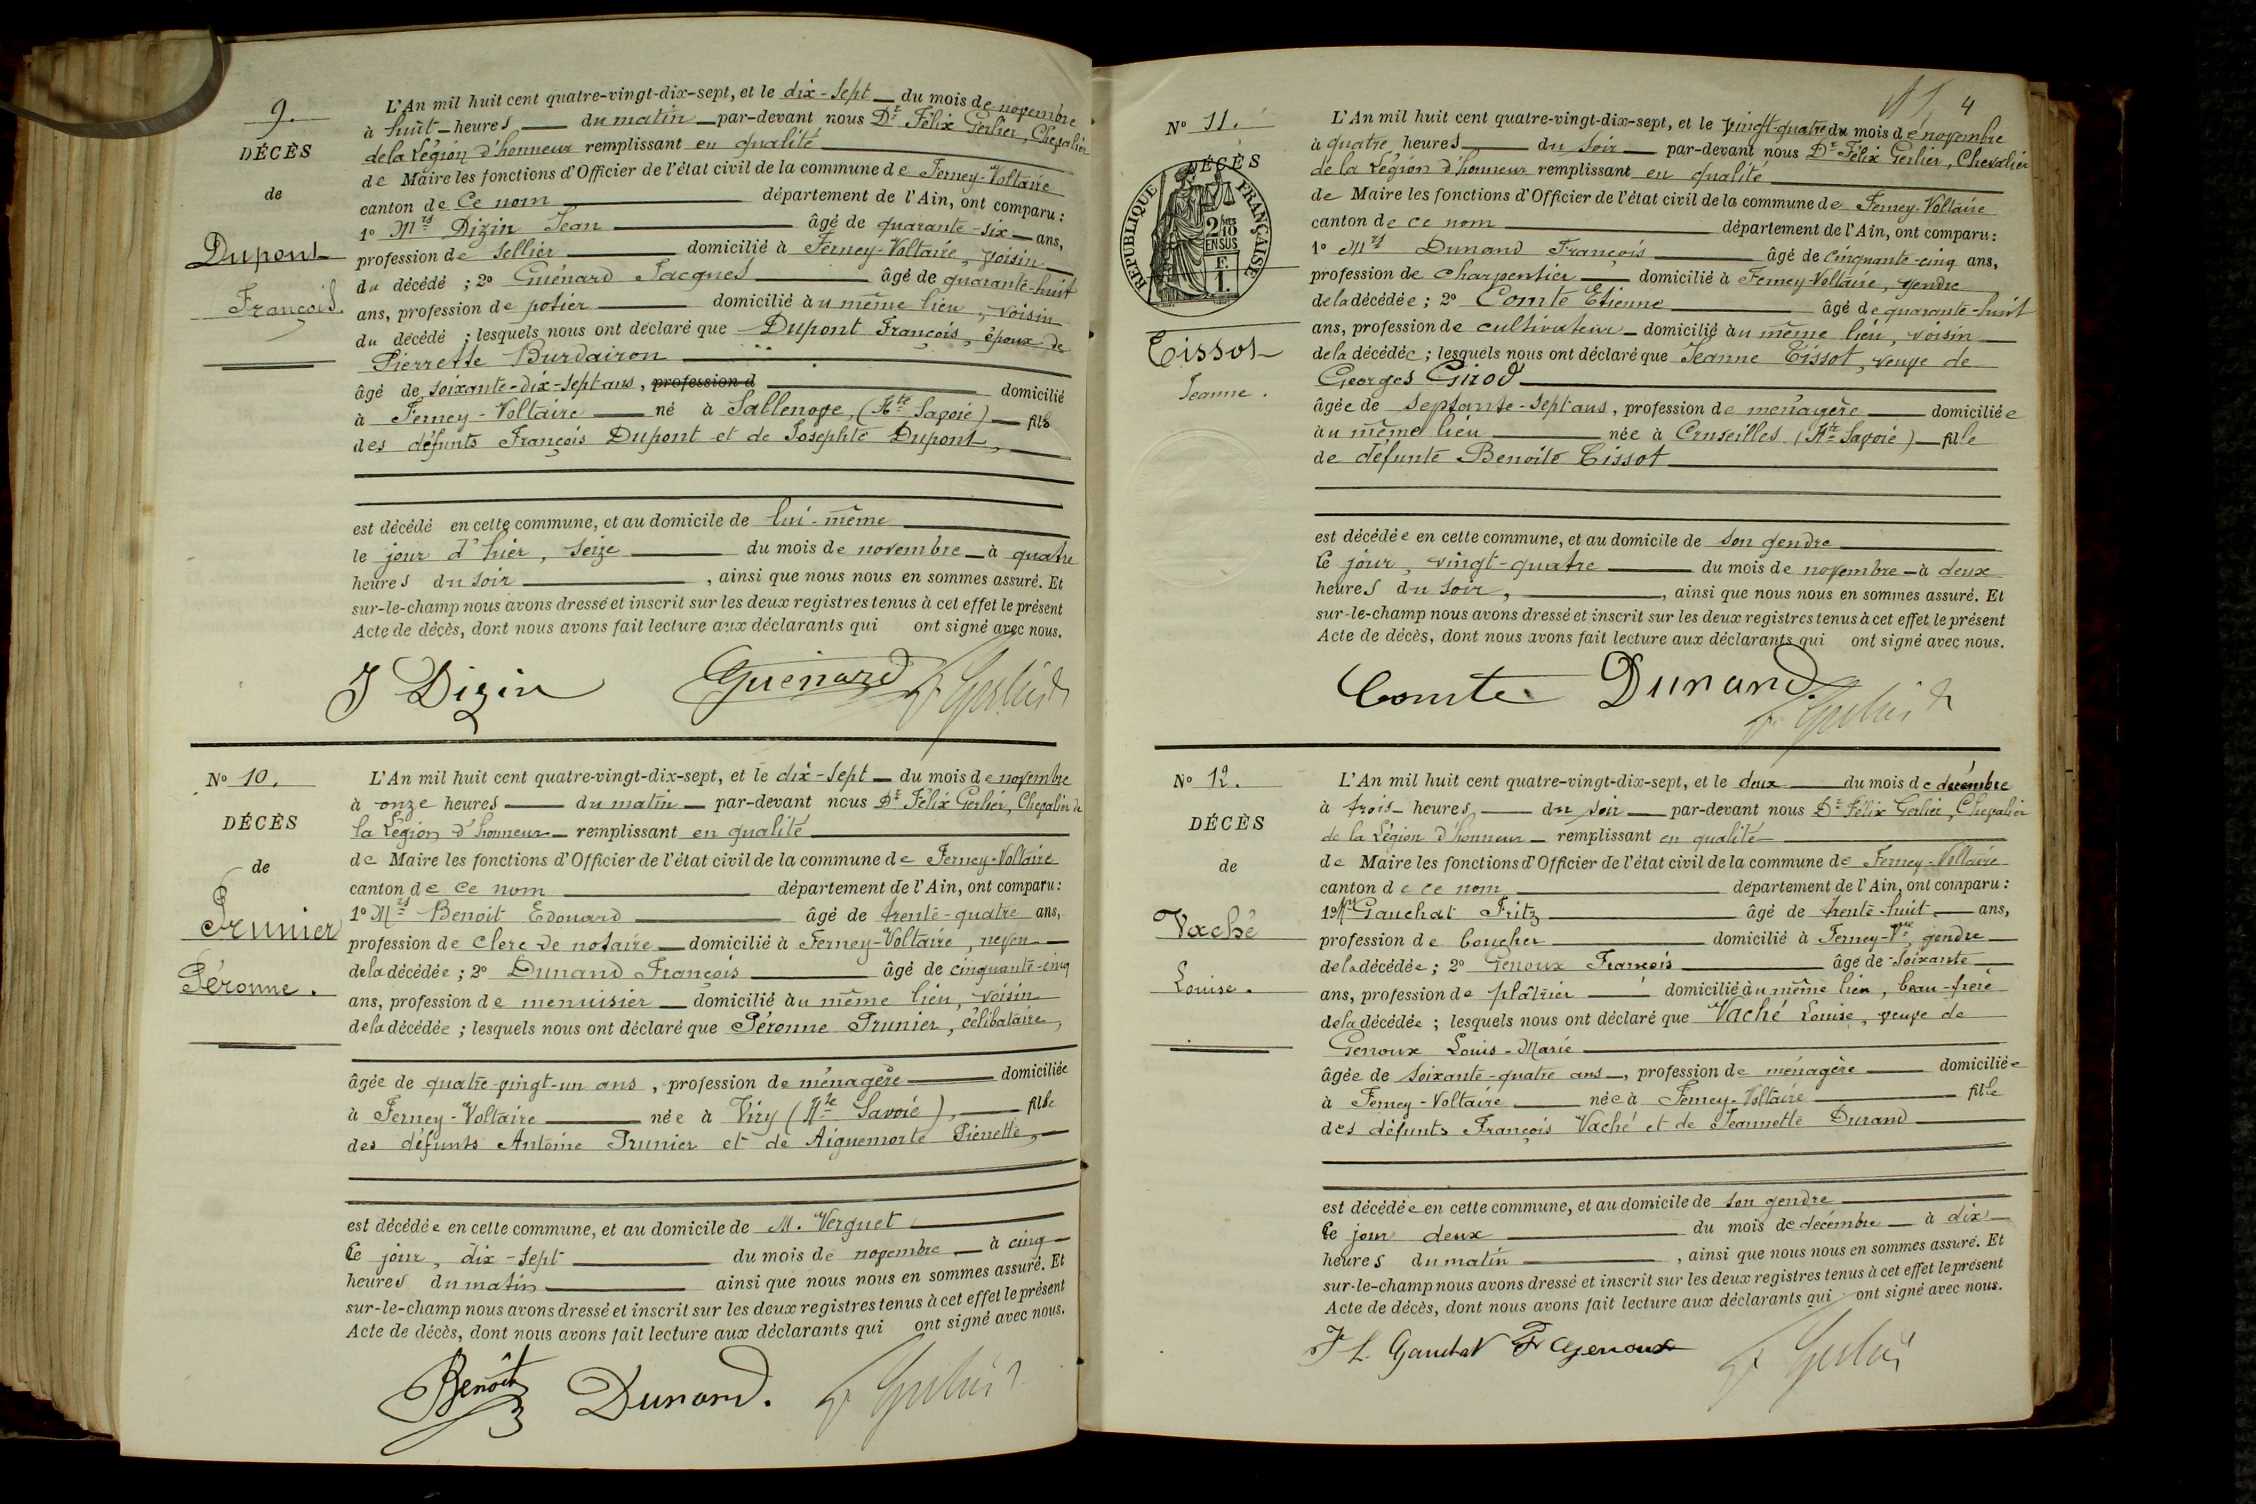 9.
DÉCÈS
de
Dupont
François.
L'An mil huit cent quatre-vingt-dix-sept, et le dix-sept du mois de novembre
à huit heures du matin par-devant nous Dr Félix Gerlier, Chevalier
de la Légion d'honneur remplissant en qualité
de Maire les fonctions d'Officier de l'état civil de la commune de Ferney-Voltaire
canton de Ce nom département de l'Ain, ont comparu :
1º Mrs Dizin Jean âgé de quarante-six ans,
profession de sellier domicilié à Ferney-Voltaire, voisin
du décédé ; 2º Guénard Jacques âgé de quarante-huit
ans, profession de potier domicilié au même lieu, voisin
du décédé ; lesquels nous ont déclaré que Dupont François, époux de
Pierrette Burdairon
âgé de soixante-dix-sept ans, profession d domicilié
à Ferney-Voltaire né à Sallenove, (Hte Savoie) fils
des défunts François Dupont et de Josephte Dupont,
est décédé en cette commune, et au domicile de lui-même
le jour d'hier, seize du mois de novembre à quatre
heures du soir, ainsi que nous nous en sommes assuré. Et
sur-le-champ nous avons dressé et inscrit sur les deux registres tenus à cet effet le présent
Acte de décès, dont nous avons fait lecture aux déclarants qui ont signé avec nous.
J Dizin Guénard F. Gerlier
Nº 10.
DÉCÈS
de
Prunier
Péronne.
L'An mil huit cent quatre-vingt-dix-sept, et le dix-sept du mois de novembre
à onze heures du matin par-devant nous Dr Félix Gerlier, Chevalier de
la Légion d'honneur remplissant en qualité
de Maire les fonctions d'Officier de l'état civil de la commune de Ferney-Voltaire
canton de ce nom département de l'Ain, ont comparu :
1º Mrs Benoit Edouard âgé de trente-quatre ans,
profession de clerc de notaire domicilié à Ferney-Voltaire, neveu
de la décédée ; 2º Dunand François âgé de cinquante-cinq
ans, profession de menuisier domicilié au même lieu, voisin
de la décédée ; lesquels nous ont déclaré que Péronne Prunier, célibataire,
âgée de quatre-vingt-un ans, profession de ménagère domiciliée
à Ferney-Voltaire née à Viry (Hte Savoie), fille
des défunts Antoine Prunier et de Aiguemorte Pierrette,
est décédée en cette commune, et au domicile de M. Verguet
Ce jour, dix-sept du mois de novembre à cinq
heures du matin ainsi que nous nous en sommes assuré. Et
sur-le-champ nous avons dressé et inscrit sur les deux registres tenus à cet effet le présent
Acte de décès, dont nous avons fait lecture aux déclarants qui ont signé avec nous.
Benoit Dunand. F. Gerlier
4
Nº 11.
DÉCÈS
RÉPUBLIQUE FRANÇAISE
2/10
EN SUS
F.
1.
Tissot
Jeanne.
L'An mil huit cent quatre-vingt-dix-sept, et le vingt-quatre du mois de novembre
à quatre heures du soir par-devant nous Dr Félix Gerlier, Chevalier
de la Légion d'honneur remplissant en qualité
de Maire les fonctions d'Officier de l'état civil de la commune de Ferney-Voltaire
canton de ce nom département de l'Ain, ont comparu :
1º Mrs Dunand François âgé de cinquante-cinq ans,
profession de charpentier domicilié à Ferney-Voltaire, gendre
de la décédée ; 2º Comte Etienne âgé de quarante-huit
ans, profession de cultivateur domicilié au même lieu, voisin
de la décédée ; lesquels nous ont déclaré que Jeanne Tissot, veuve de
Georges Girod
âgée de septante-sept ans, profession de ménagère domiciliée
au même lieu née à Cruseilles (Hte Savoie) fille
de défunte Benoite Tissot
est décédée en cette commune, et au domicile de son gendre
Ce jour, vingt-quatre du mois de novembre à deux
heures du soir, ainsi que nous nous en sommes assuré. Et
sur-le-champ nous avons dressé et inscrit sur les deux registres tenus à cet effet le présent
Acte de décès, dont nous avons fait lecture aux déclarants qui ont signé avec nous.
Comte Dunand. F. Gerlier
Nº 12.
DÉCÈS
de
Vaché
Louise.
L'An mil huit cent quatre-vingt-dix-sept, et le deux du mois de décembre
à trois heures du soir par-devant nous Dr Félix Gerlier, Chevalier
de la Légion d'honneur remplissant en qualité
de Maire les fonctions d'Officier de l'état civil de la commune de Ferney-Voltaire
canton de ce nom département de l'Ain, ont comparu :
1º Mrs Gauchat Fritz âgé de trente-huit ans,
profession de boucher domicilié à Ferney-Vre, gendre
de la décédée ; 2º Genoux François âgé de soixante
ans, profession de plâtrier domicilié au même lieu, beau-frère
de la décédée ; lesquels nous ont déclaré que Vaché Louise, veuve de
Genoux Louis-Marie
âgée de soixante-quatre ans, profession de ménagère domiciliée
à Ferney-Voltaire née à Ferney-Voltaire fille
des défunts François Vaché et de Jeannette Durand
est décédée en cette commune, et au domicile de son gendre
Ce jour deux du mois de décembre à dix
heures du matin, ainsi que nous nous en sommes assuré. Et
sur-le-champ nous avons dressé et inscrit sur les deux registres tenus à cet effet le présent
Acte de décès, dont nous avons fait lecture aux déclarants qui ont signé avec nous.
F L. Gauchat Fr Genoux F. Gerlier